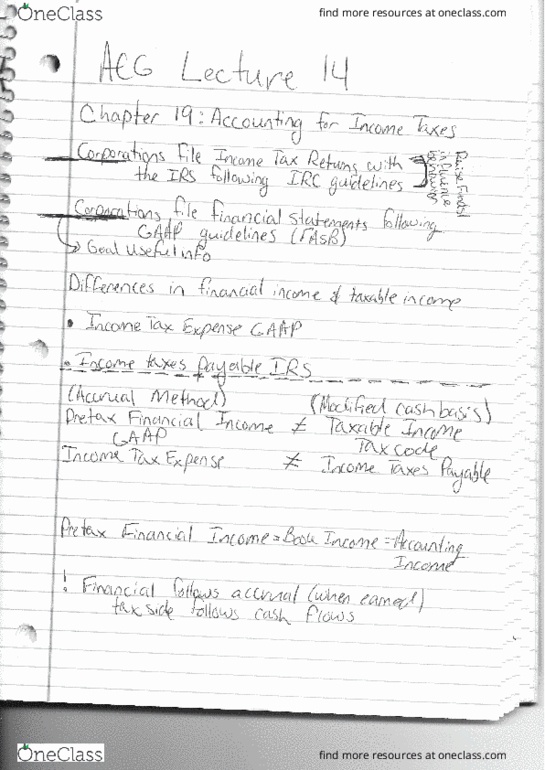 OneClass
find more resources at oneclass.com
ACG Lecture 14
Chapter 19: Accounting for Income Taxes
Corporations File Income Tax Returns with
the IRS following IRC guidelines
Raise Funds/
influence
behavior
Corporations file financial statements following
GAAP guidelines (FASB)
→ Goal Useful info
Differences in financial income & taxable income
• Income Tax Expense GAAP
• Income taxes payable IRS
(Accrual Method) (Modified cash basis)
Pretax Financial Income ≠ Taxable Income
GAAP Tax code
Income Tax Expense ≠ Income Taxes Payable
Pretax Financial Income = Book Income = Accounting
Income
! Financial follows accrual (when earned)
tax side follows cash flows
OneClass
find more resources at oneclass.com